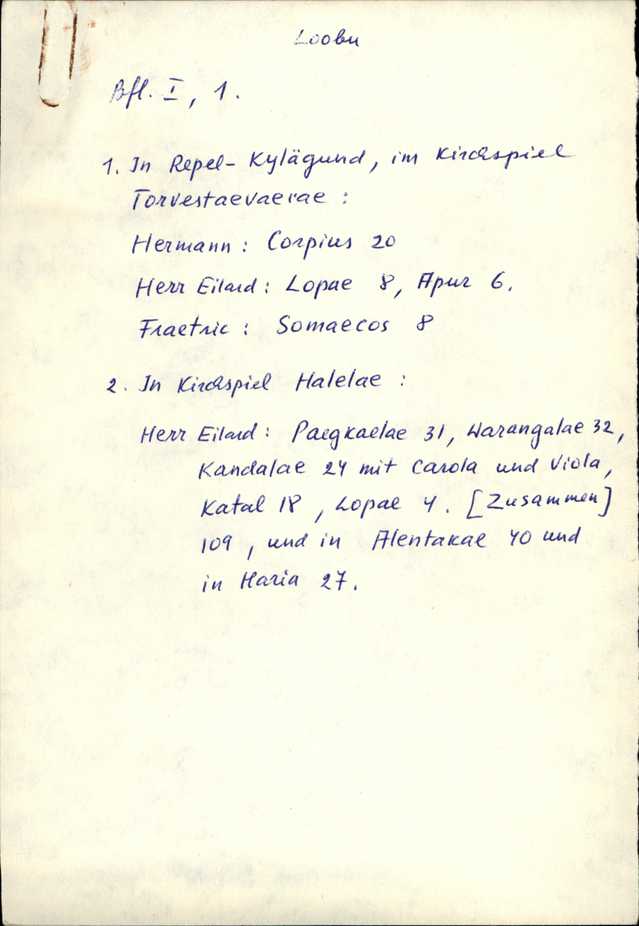 Loobu
Bfl. I, 1.
1. In Repel-Kylägund, im Kirchspiel
Torvestaevaerae :
Hermann : Corpius 20
Herr Eilard : Lopae 8, Apur 6.
Fraetric : Somaecos 8
2. In Kirchspiel Halelae :
Herr Eilard : Paegkaelae 31, Warangalae 32,
Kandalae 24 mit Carola und Viola,
Katal 18, Lopae 4. [Zusammen]
109, und in Alentakae 40 und
in Haria 27.